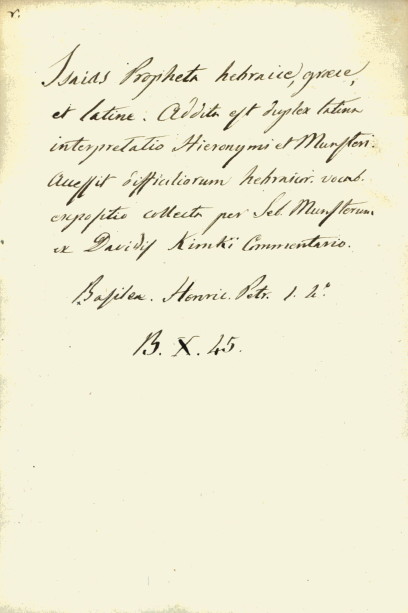 r.
Isaias Propheta hebraice, graece,
et latine. Addita est duplex latina
interpretatio Hieronymi et Munsteri.
Accessit difficiliorum hebraior. vocab.
expositio collecta per Seb. Munsterum
ex Davidis Kimki Commentario.
Basilea. Henric. Petr. 1. 2°.
B. X. 45.